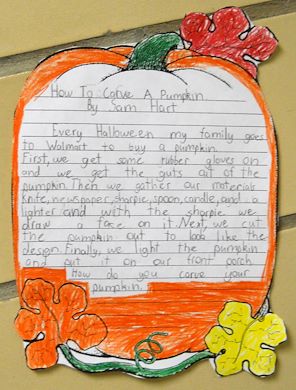 How To: Carve A Pumpkin
By Sam Hart
Every Halloween my family goes
to Walmart to buy a pumpkin.
First, we get some rubber gloves on
and we get the guts out of the
pumpkin. Then we gather our materials
knife, newspaper, sharpie, spoon, candle, and a
lighter and with the sharpie we
draw a face on it. Next, we cut
the pumpkin out to look like the
design. Finally, we light the pumpkin
and put it on our front porch.
How do you carve your
pumpkin.